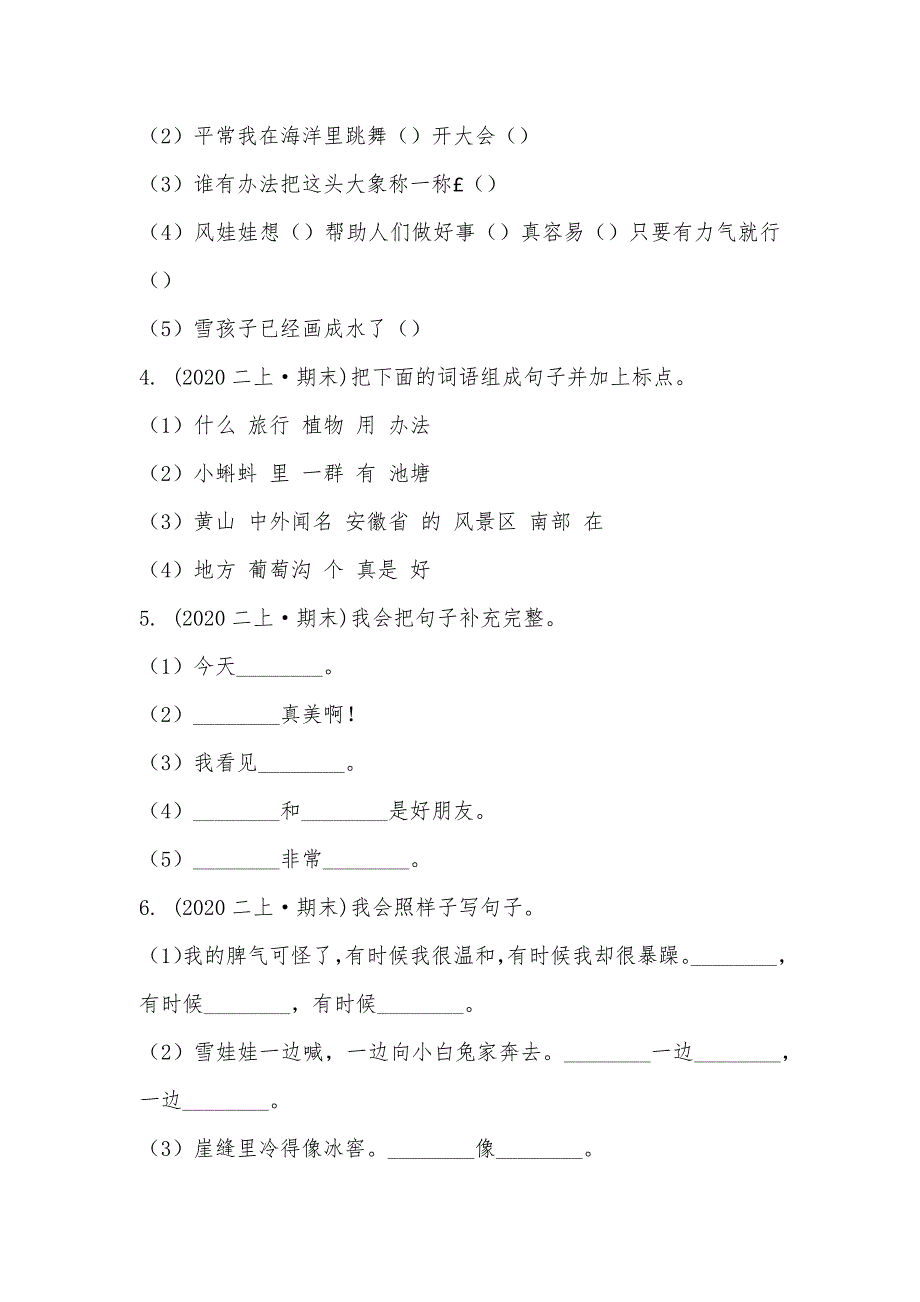 （2）平常我在海洋里跳舞（）开大会（）
（3）谁有办法把这头大象称一称£（）
（4）风娃娃想（）帮助人们做好事（）真容易（）只要有力气就行
（）
（5）雪孩子已经画成水了（）
4. (2020二上·期末)把下面的词语组成句子并加上标点。
（1）什么 旅行 植物 用 办法
（2）小蝌蚪 里 一群 有 池塘
（3）黄山 中外闻名 安徽省 的 风景区 南部 在
（4）地方 葡萄沟 个 真是 好
5. (2020二上·期末)我会把句子补充完整。
（1）今天________。
（2）________真美啊！
（3）我看见________。
（4）________和________是好朋友。
（5）________非常________。
6. (2020二上·期末)我会照样子写句子。
（1)我的脾气可怪了，有时候我很温和，有时候我却很暴躁。________，
有时候________，有时候________。
（2）雪娃娃一边喊，一边向小白兔家奔去。________一边________，
一边________。
（3）崖缝里冷得像冰窖。________像________。